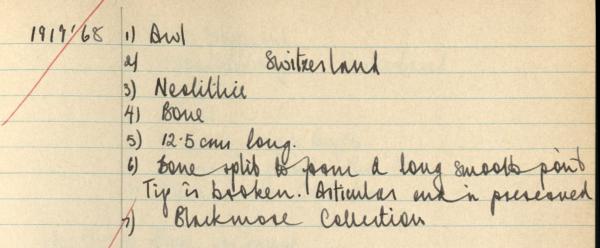 1917'68 1) Awl
2) Switzerland
3) Neolithic
4) Bone
5) 12.5 cms long.
6) Bone split to form a long smooth point
Tip is broken. Articular end is preserved
7) Blackmore Collection